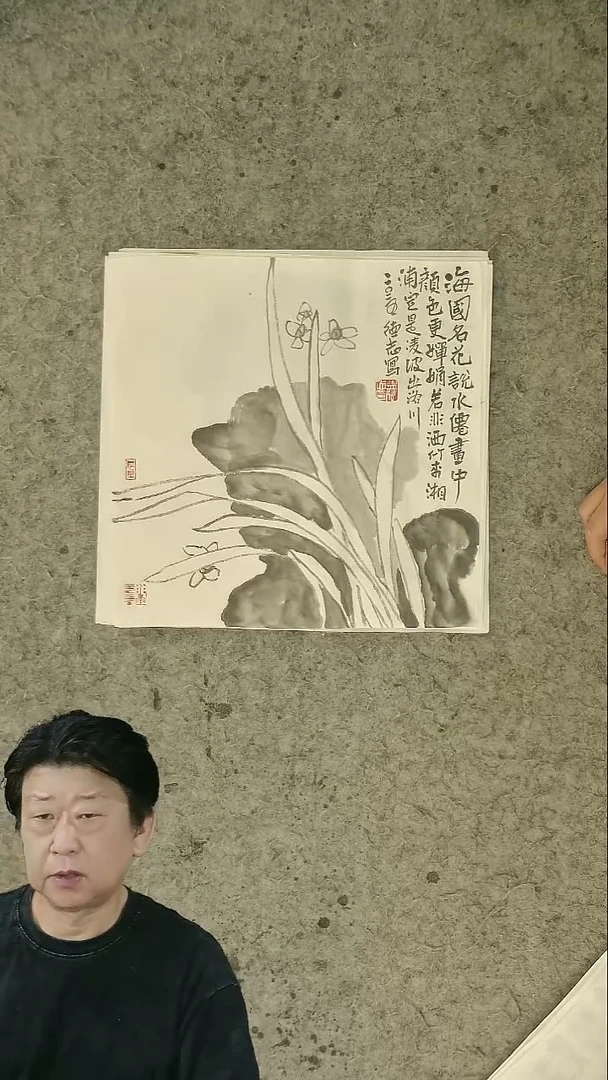 海國名花說水僊畫中
顏色更嬋娟若非洒竹来湘
浦定是凌波出洛川
二〇二五德志寫